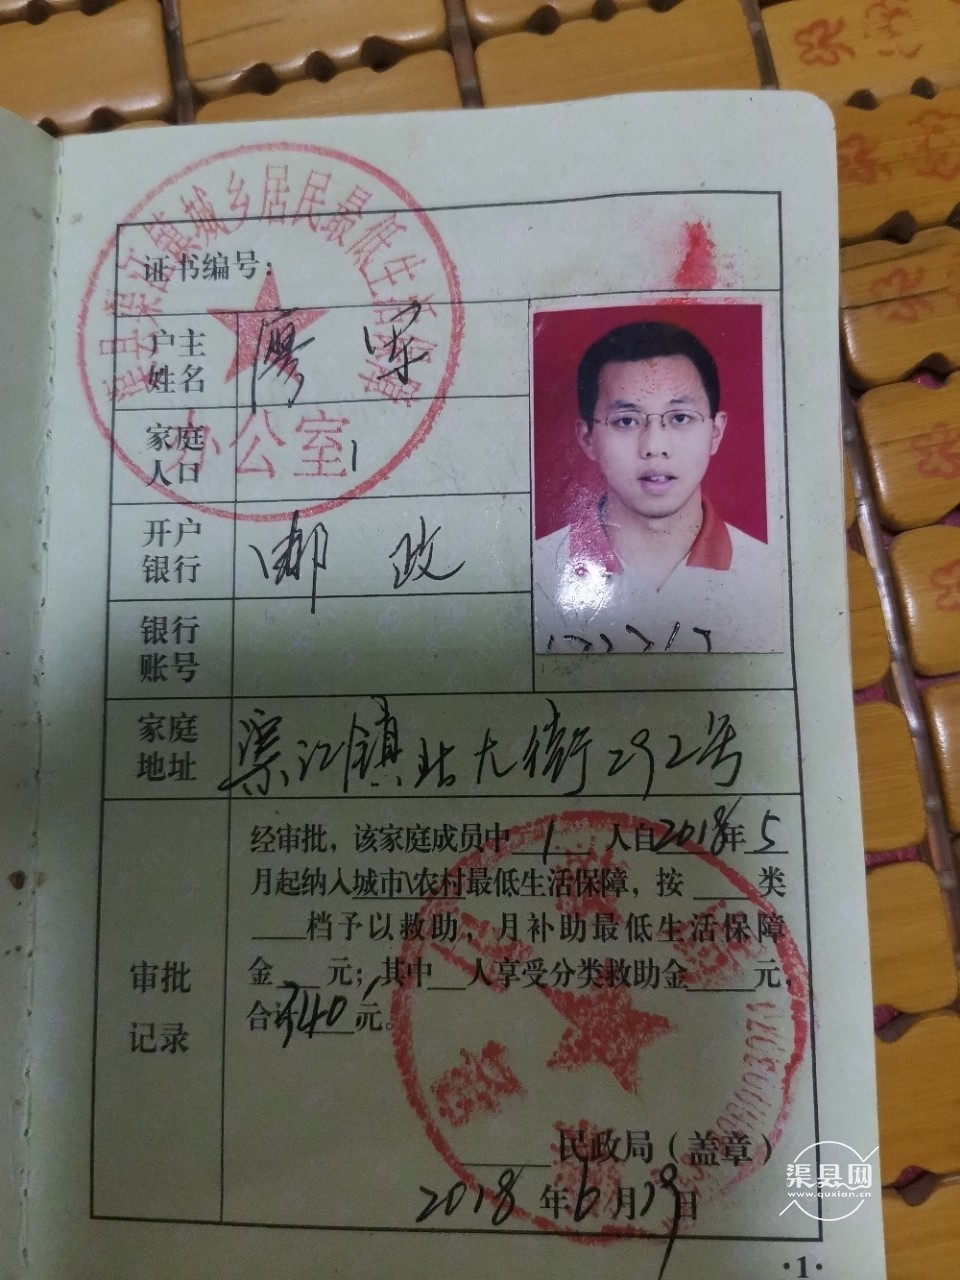 渠县渠江镇城乡居民最低生活保障
办公室
证书编号：
户主
姓名
廖 军
家庭
人口
1
开户
银行
邮 政
银行
账号
家庭
地址
渠江镇站大街292号
审批
记录
经审批，该家庭成员中 1 人自2018年 5
月起纳入城市\农村最低生活保障，按 类
档予以救助，月补助最低生活保障
金 元；其中 人享受分类救助金 元，
合计 340 元。
民政局（盖章）
2018 年 6 月 19 日
渠县网
www.quxian.cn
·1·